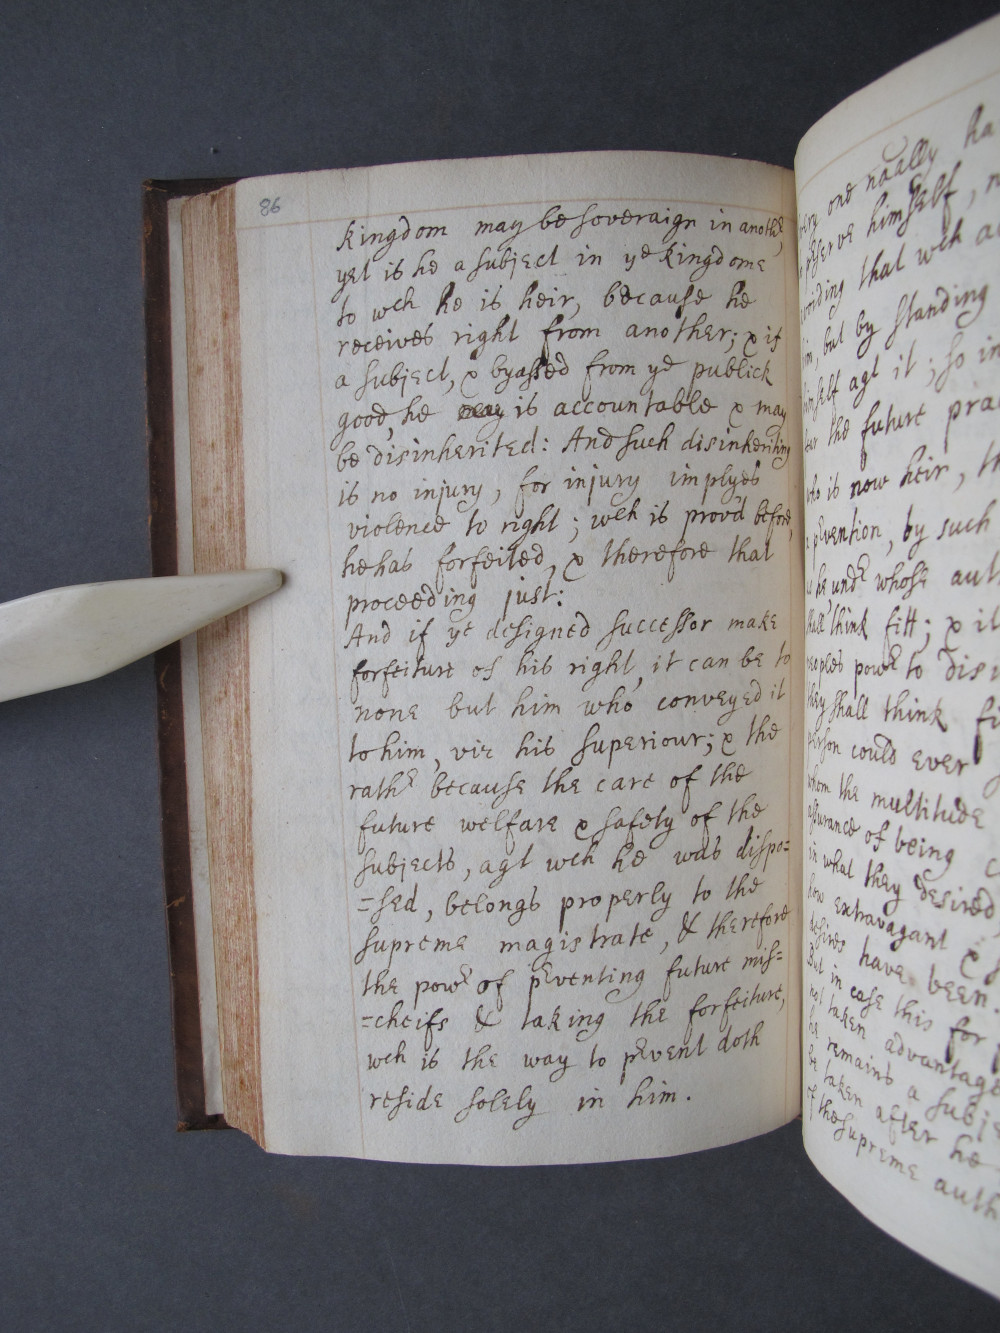 86
kingdom may be soveraign in anothr,
yet is he a subject in ye kingdome
to wch he is heir, because he
receives right from another; & if
a subject, & byassed from ye publick
good, he is accountable & may
be disinherited: And such disinheriting
is no injury, for injury implyes
violence to right; wch is prov'd before,
he has forfeited, & therefore that
proceeding just:
And if ye designed successor make
forfeiture of his right, it can be to
none but him who conveyed it
to him, viz his superiour; & the
rathr because the care of the
future welfare & safety of the
subjects, agt wch he was dispo=
=sed, belongs properly to the
supreme magistrate, & therefore
the powr of pventing future mis=
=cheifs & taking the forfeiture,
wch is the way to pvent doth
reside solely in him.
one naally ha
himself,
that wch
but by standing
agt it; so in
the future
who is now heir, th
pvention, by such
he, undr whose aut
think fitt; & it
powr to disi
they shall think fi
person could ever
whom the multitude
assurance of being
in what they desired,
how extravagant &
desires have been.
But in case this for
not taken advantage
he remains a subje
be taken after he
of the supreme auth